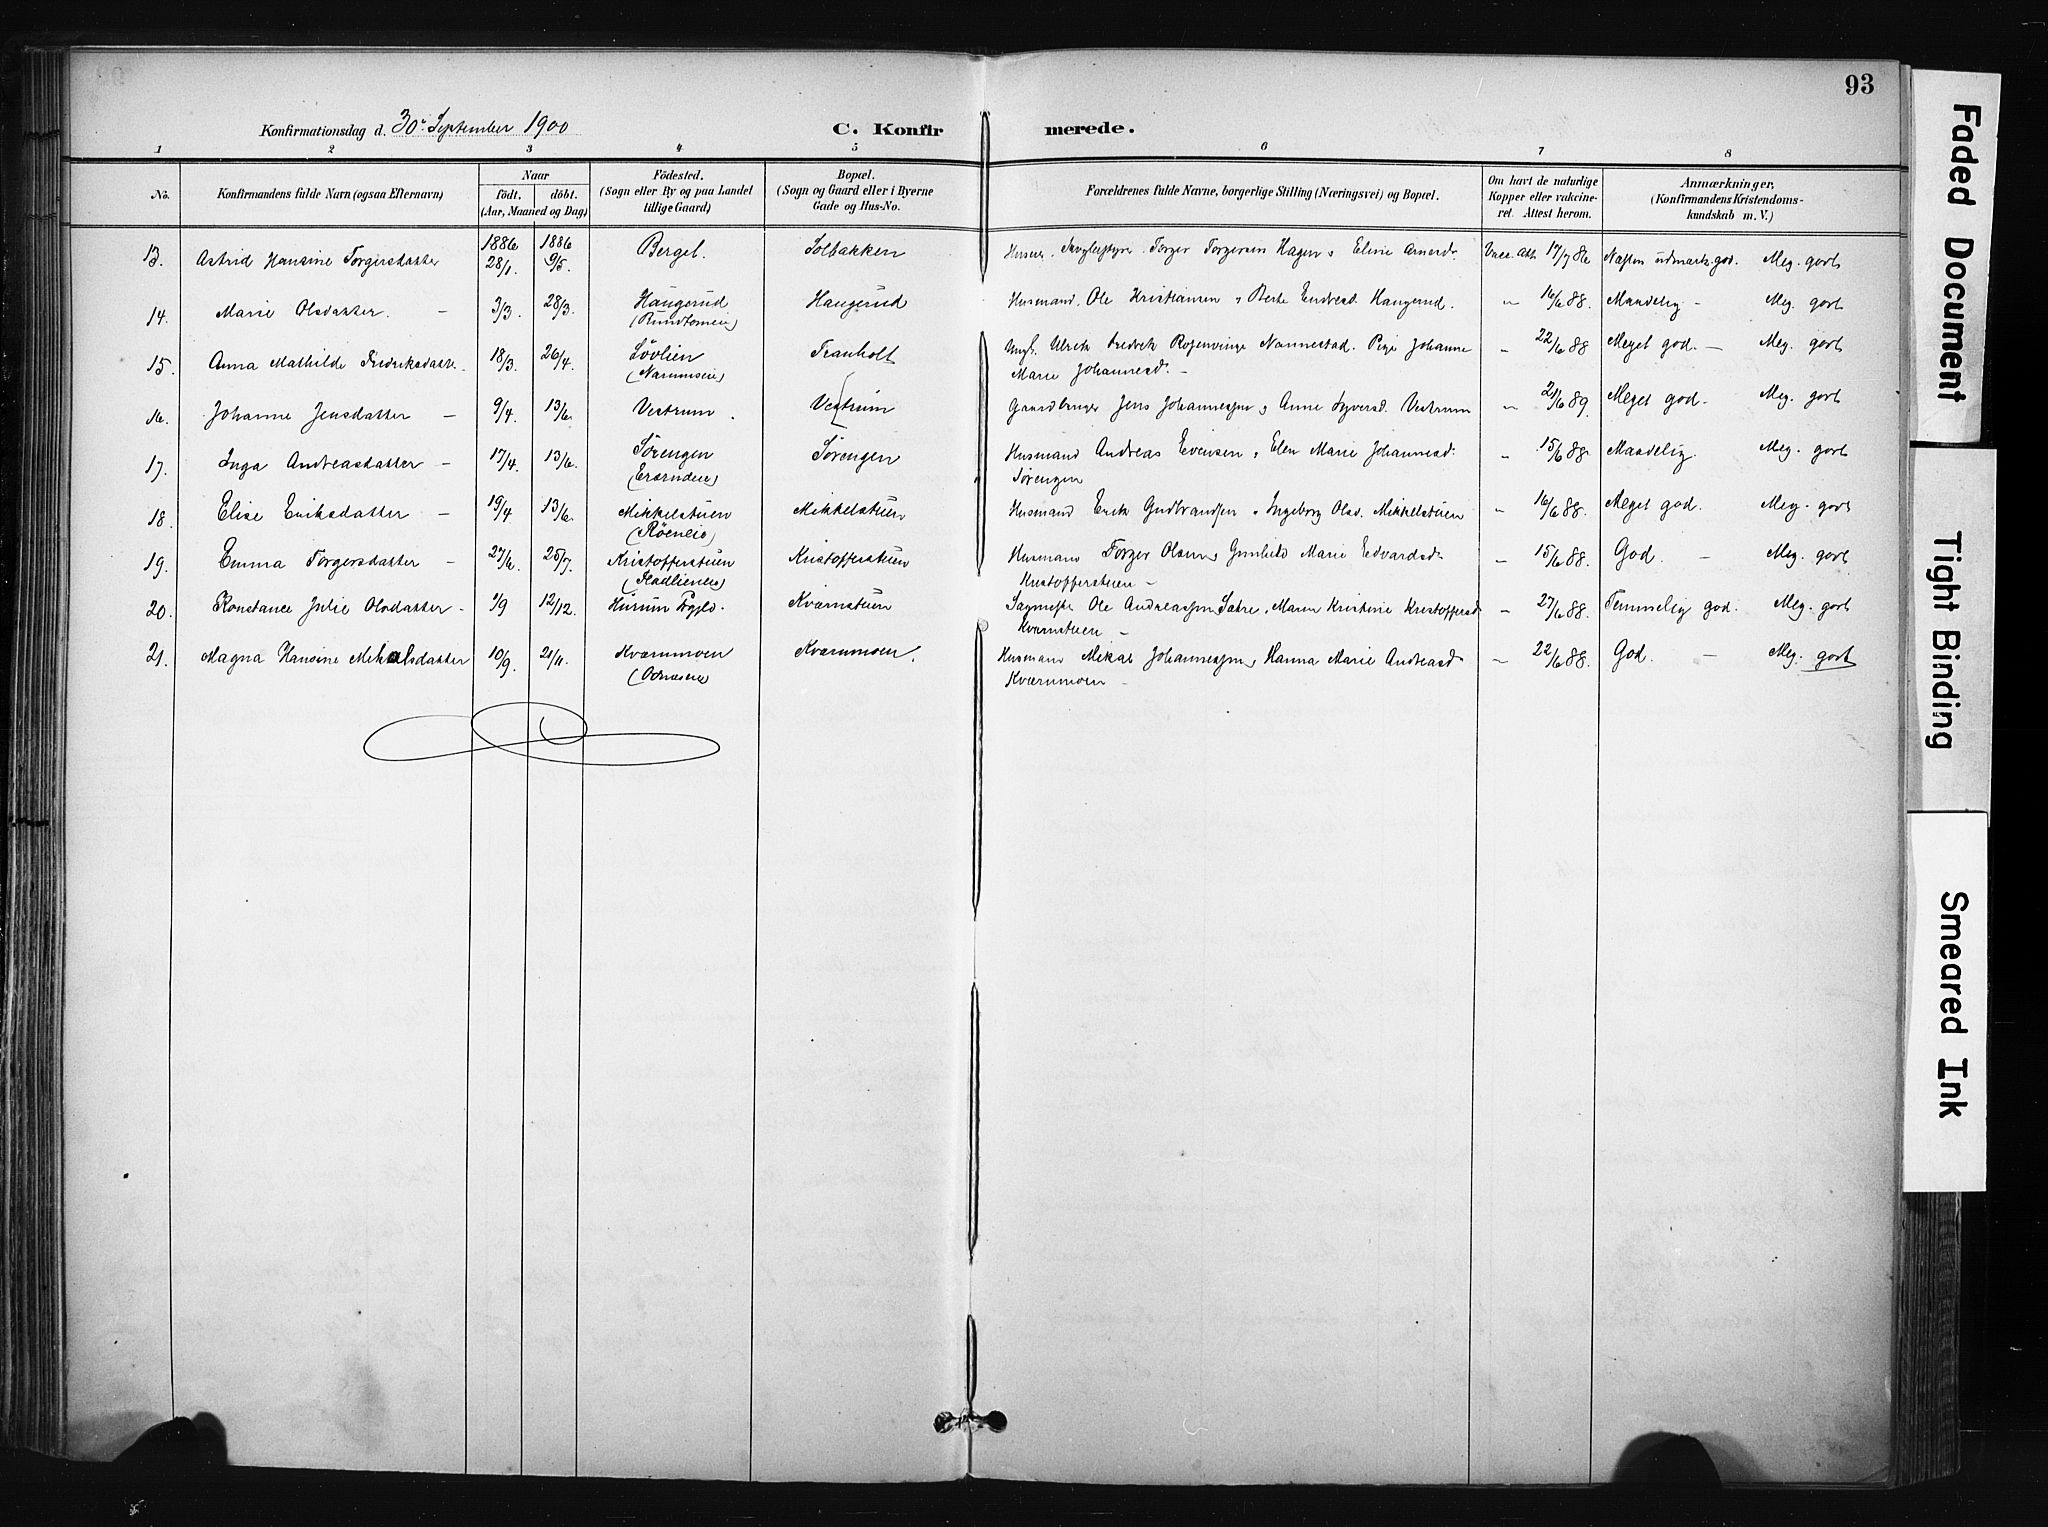 93
Konfirmationsdag d. 30. September 1900 C. Konfirmerede.
1 2 3 4 5 6 7 8
No. Konfirmandens fulde Navn (ogsaa Efternavn) Naar født. døbt. (Aar, Maaned og Dag) Fødested. (Sogn eller By og paa Landet tillige Gaard) Bopæl. (Sogn og Gaard eller i Byerne Gade og Hus-No. Forældrenes fulde Navne, borgerlige Stilling (Næringsvei) og Bopæl. Om havt de naturlige Kopper eller vakcineret. Attest herom. Anmærkninger, (Konfirmandens Kristendomskundskab m. V.)
13. Astrid Hansine Torgersdatter 1886 28/1. 1886 9/5. Bergel. Solbakken Torger Torgersen Hagen o Eline Arnesd. Vacc. Att. 17/7 86 Næsten udmærk. god. Meg. godt
14. Marie Olsdatter. – 3/3. 28/3. Haugerud Haugerud Husmand. Ole Kristiansen o Berte Endresd. Haugerud. " 16/6 88. Maadelig – Meg. godt
(Rundtomeie)
15. Anna Mathilde Fredriksdatter. 18/3. 26/4. Løvlien Tranholt Ungk. Ulrik Fredrik Rosenvinge Nannestad. Pige Johanne " 22/6 88 Meget god. – Meg. godt
(Narumseie) Marie Johannesd. –
16. Johanne Jensdatter – 9/4. 13/6. Vestrum. Vestrum Gaardbruger Jens Johannessen o Anne Syversd. Vestrum " 21/6 89. Meget god. Meg. godt
17. Inga Andreasdatter – 17/4. 13/6. Sørengen Sørengen Husmand Andreas Evensen o Elen Marie Johannesd. " 15/6 88. Maadelig. Meg. godt
Sørengen
18. Elise Eriksdatter – 19/4 13/6. Mikkelstuen Mikkelstuen Husmand Erik Gudbrandsen o Ingeborg Olsd. Mikkelstuen " 16/6 88. Meget god. Meg. godt
(Røeneie)
19. Emma Torgersdatter – 27/6. 25/7. Kristofferstuen Kristofferstuen Husmand Torger Olsen o Gunhild Marie Edvardsd. – 15/6 88. God. – Meg. godt
Kristofferstuen –
20. Konstance Julie Olsdatter – 1/9 12/12. Hurum Kværnstuen Ole Andreassen Sætre o Maren Kristine Kristoffersd. – 27/6 88. Temmelig god. Meg. godt
Kværnstuen –
21. Magna Hansine Mikalsdatter 10/9. 21/11. Kværnmoen Kværnmoen. Husmand Mikal Johannessen o Hanna Marie Andreasd. – 22/6 88. God. – Meg. godt
(Odnæseie) Kværnmoen –
Faded Document
Tight Binding
Smeared Ink